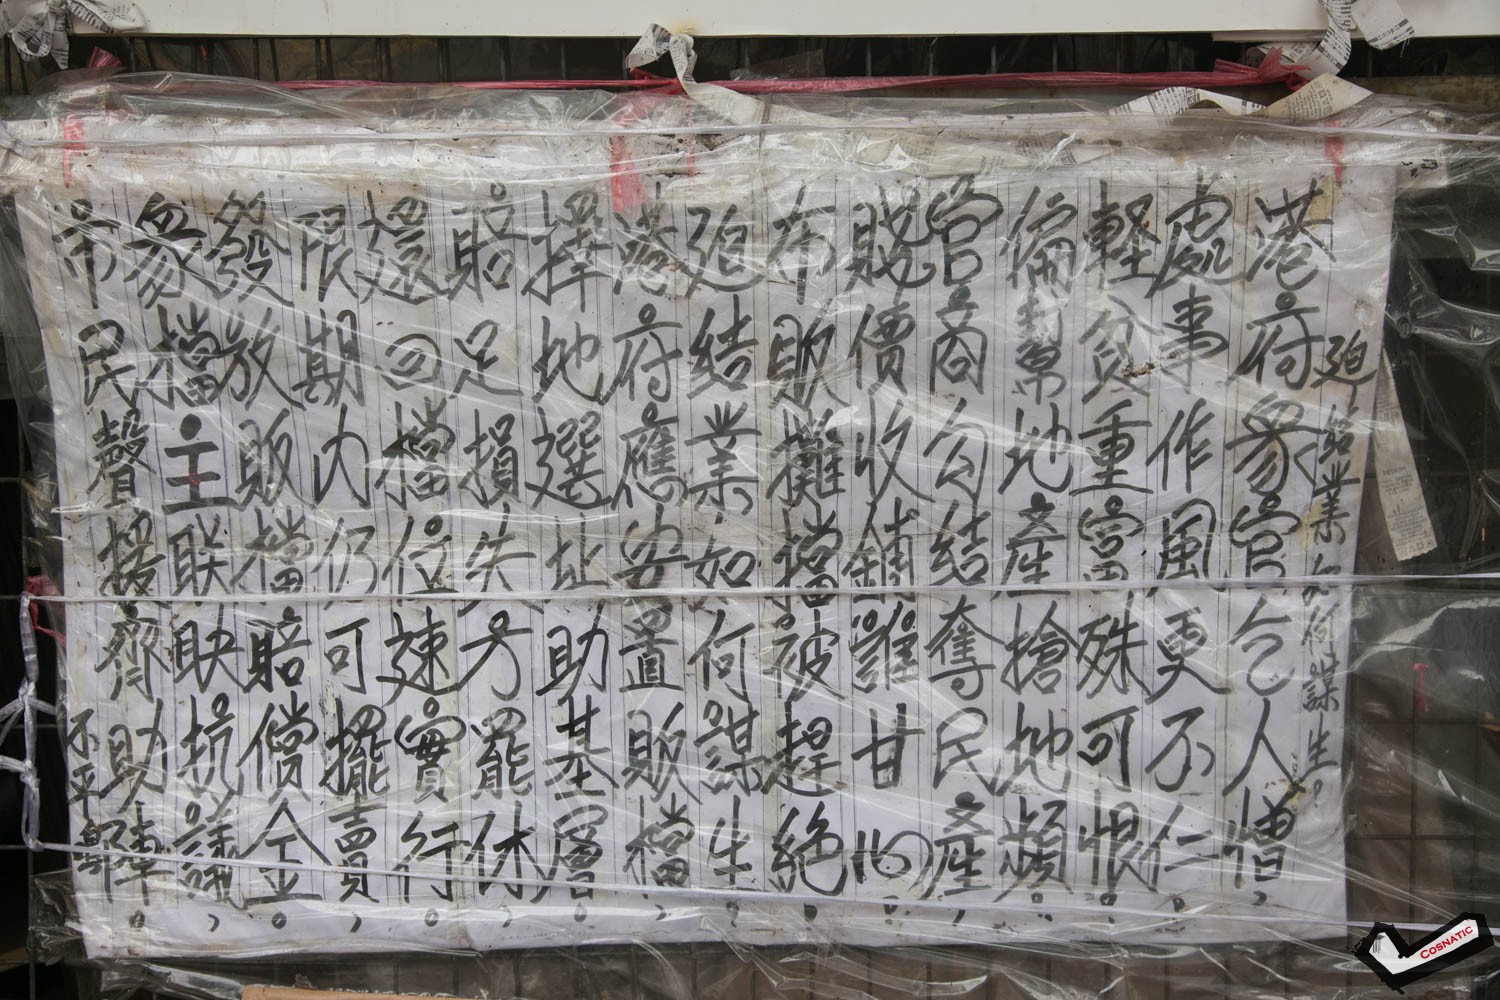 迫結業如何謀生。
港府衆官乞人憎,
處事作風更不仁,
軽貧重富殊可恨。
偏幫地產搶地頻。
官商勾結奪民產,
賤價收鋪誰甘心。
布販攤檔被趕絕,
迫結業如何謀生。
港府應安置販檔,
擇地選址助基層。
賠足損失方罷休,
還回檔位速實行。
限期内仍可擺賣,
發放販檔賠償金。
衆檔主联袂抗議,
市民聲援齊助陣。
不平鄭
COSNATIC